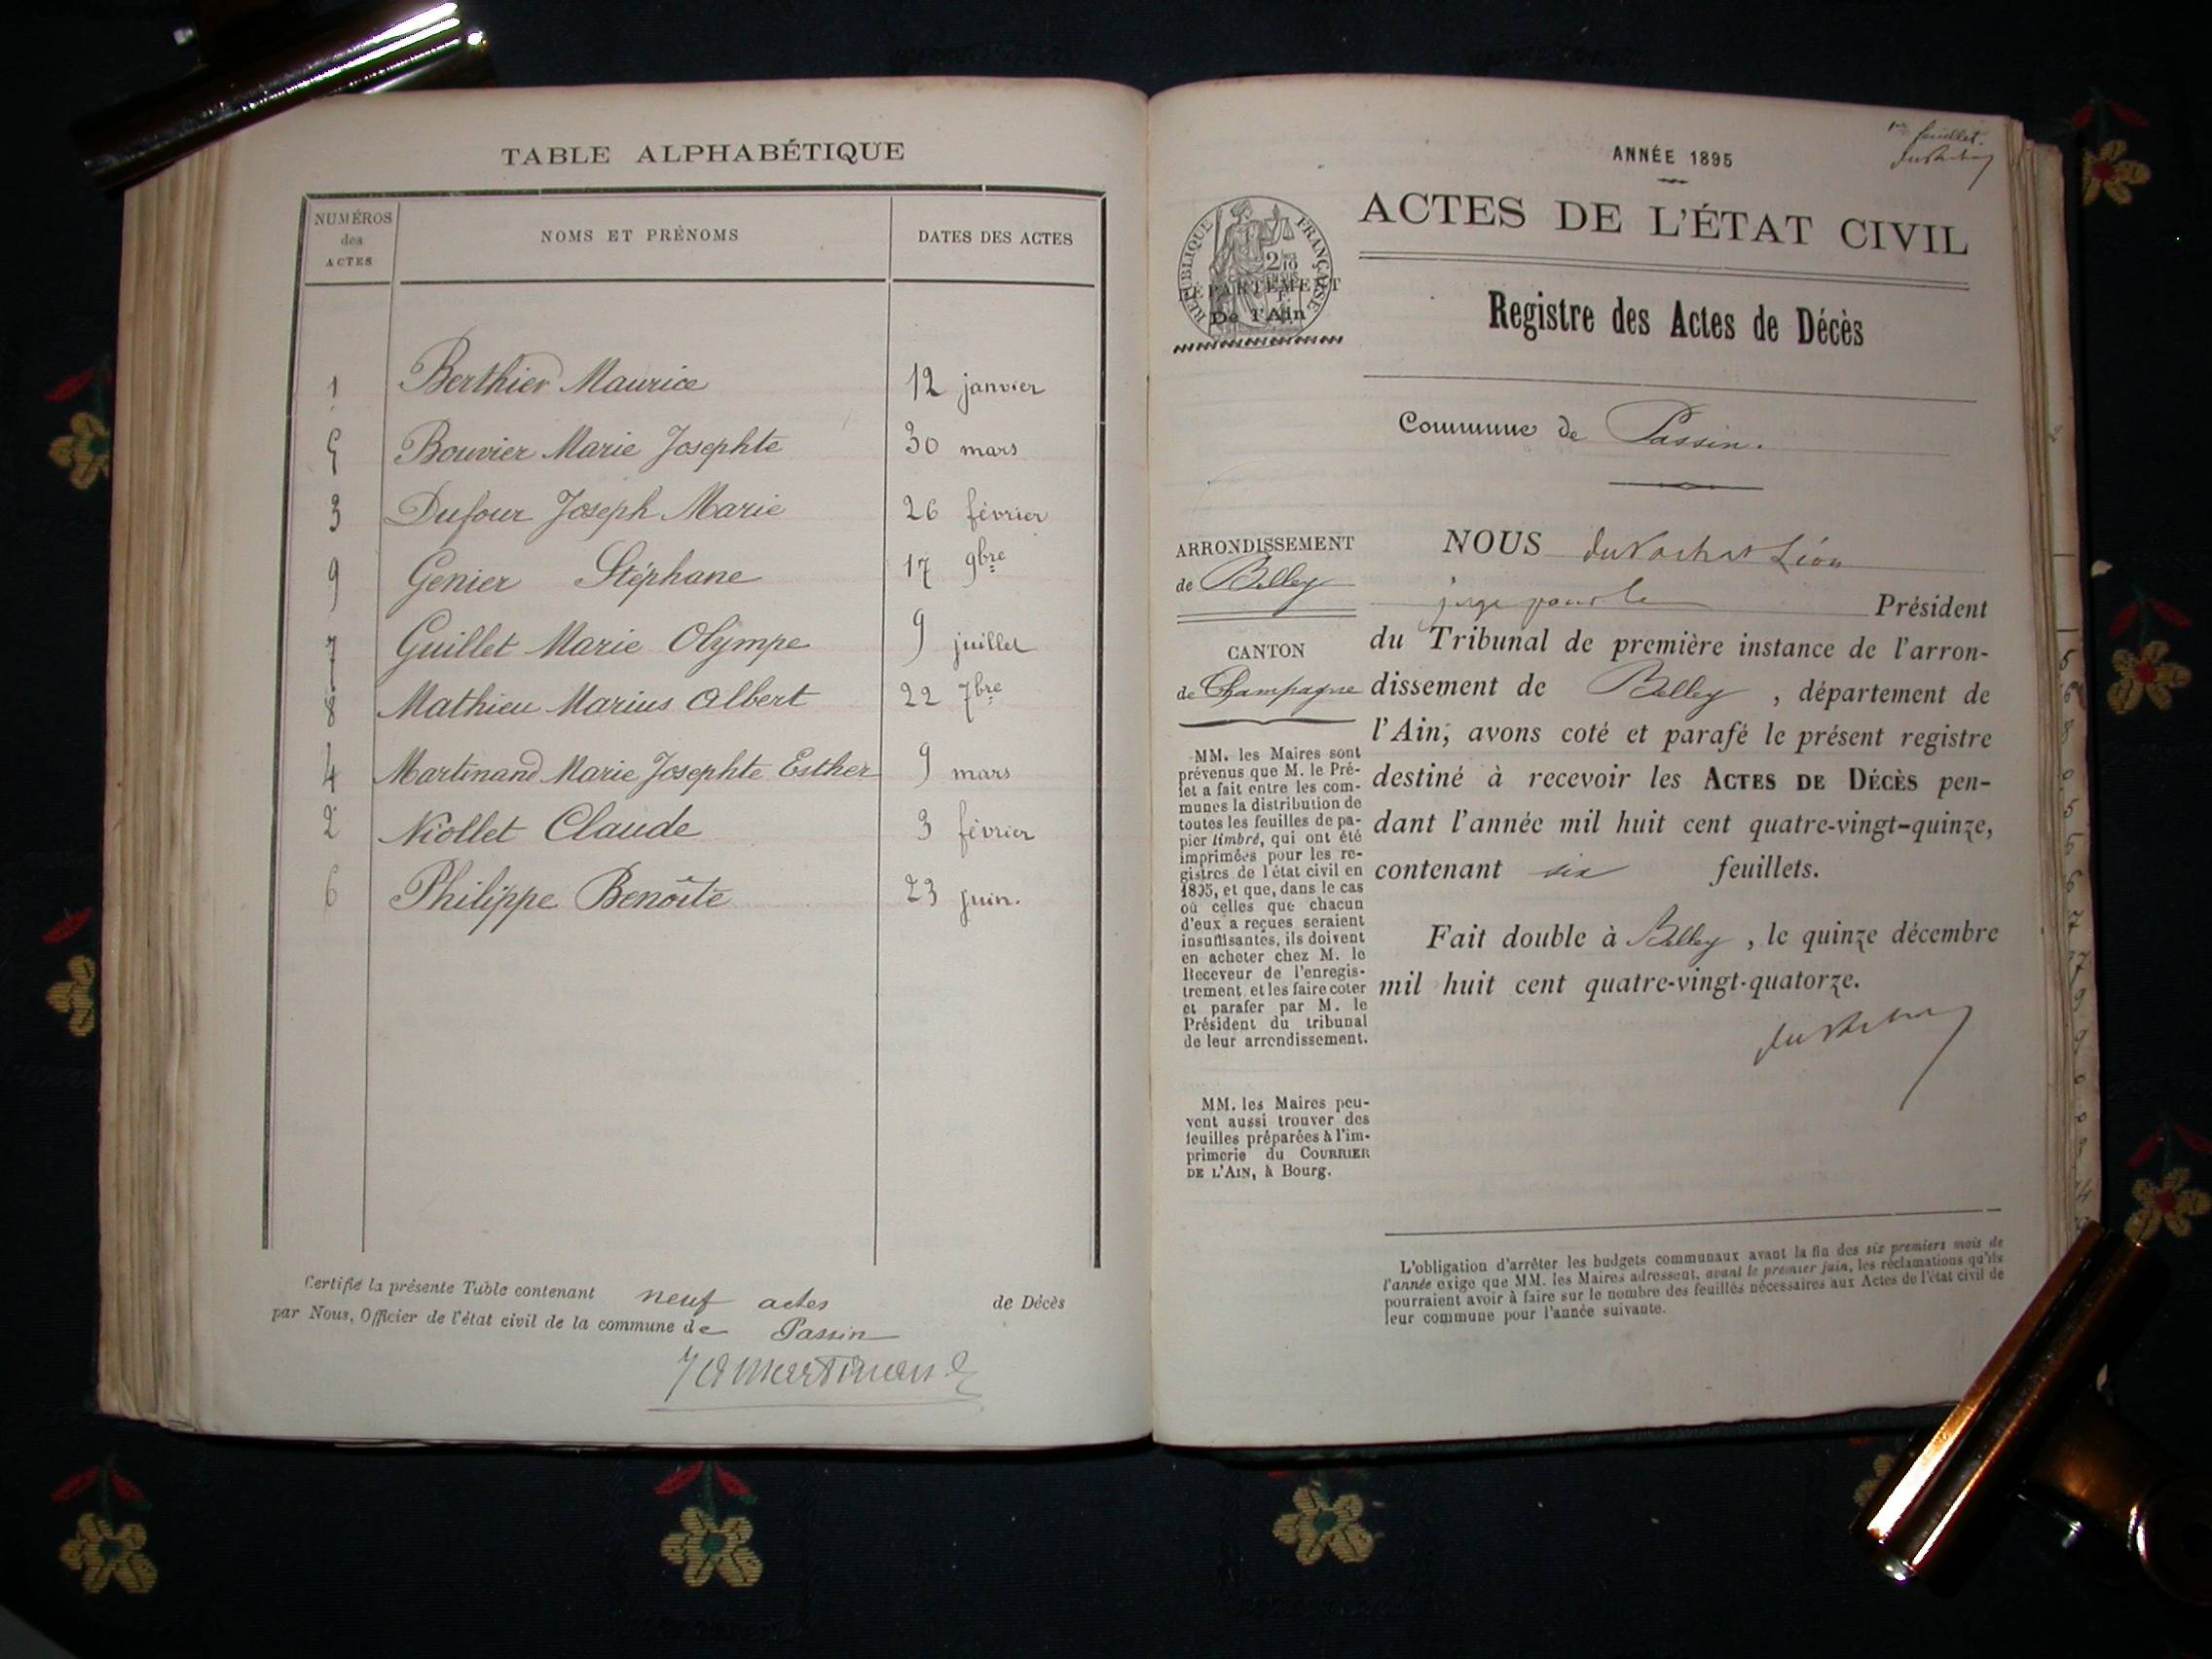 TABLE ALPHABÉTIQUE
NUMÉROS
des
ACTES
NOMS ET PRÉNOMS
DATES DES ACTES
1 Berthier Maurice 12 janvier
5 Bouvier Marie Josephte 30 mars
3 Dufour Joseph Marie 26 février
9 Genier Stéphane 17 9bre
7 Guillet Marie Olympe 9 juillet
8 Mathieu Marius Albert 22 7bre
4 Martinand Marie Josephte Esther 9 mars
2 Niollet Claude 3 février
6 Philippe Benoîte 23 juin.
Certifié la présente Table contenant neuf actes de Décès
par Nous, Officier de l'état civil de la commune de Passin
Martinand
1er feuillet.
ANNÉE 1895
ACTES DE L'ÉTAT CIVIL
RÉPUBLIQUE FRANÇAISE
2/10
EN SUS
DÉPARTEMENT
De l'Ain
Registre des Actes de Décès
Commune de Passin.
ARRONDISSEMENT
de Belley
CANTON
de Champagne
MM. les Maires sont
prévenus que M. le Pré-
fet a fait entre les com-
munes la distribution de
toutes les feuilles de pa-
pier timbré, qui ont été
imprimées pour les re-
gistres de l'état civil en
1895, et que, dans le cas
où celles que chacun
d'eux a reçues seraient
insuffisantes, ils doivent
en acheter chez M. le
Receveur de l'enregis-
trement et les faire coter
et parafer par M. le
Président du tribunal
de leur arrondissement.
MM. les Maires peu-
vent aussi trouver des
feuilles préparées à l'im-
primerie du COURRIER
DE L'AIN, à Bourg.
NOUS Léon
juge pour le Président
du Tribunal de première instance de l'arron-
dissement de Belley, département de
l'Ain, avons coté et parafé le présent registre
destiné à recevoir les ACTES DE DÉCÈS pen-
dant l'année mil huit cent quatre-vingt-quinze,
contenant six feuillets.
Fait double à Belley, le quinze décembre
mil huit cent quatre-vingt-quatorze.
L'obligation d'arrêter les budgets communaux avant la fin des six premiers mois de
l'année exige que MM. les Maires adressent, avant le premier juin, les réclamations qu'ils
pourraient avoir à faire sur le nombre des feuilles nécessaires aux Actes de l'état civil de
leur commune pour l'année suivante.